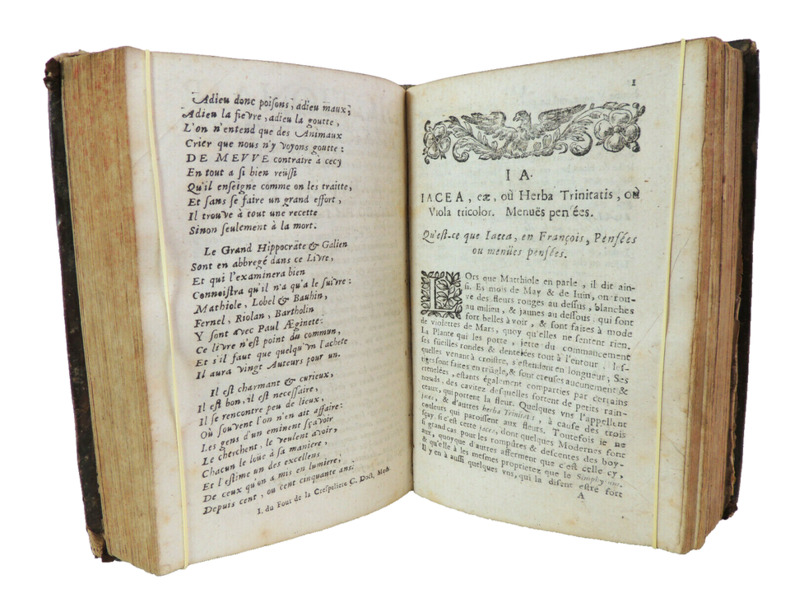 Adieu donc poisons, adieu maux;
Adieu la fievre, adieu la goutte,
L'on n'entend que des Animaux
Crier que nous n'y voyons goutte:
DE MEVVE contraire à cecy
En tout a si bien reüssi
Qu'il enseigne comme on les traitte,
Et sans se faire un grand effort,
Il trouve à tout une recette
Sinon seulement à la mort.
Le Grand Hippocrate & Galien
Sont en abbregé dans ce Livre,
Et qui l'examinera bien
Connoistra qu'il n'a qu'a le suivre:
Mathiole, Lobel & Bauhin,
Fernel, Riolan, Bartholin
Y sont avec Paul Æginete:
Ce livre n'est point du commun,
Et s'il faut que quelqu'vn l'achete
Il aura vingt Auteurs pour un.
Il est charmant & curieux,
Il est bon, il est necessaire,
Il se rencontre peu de lieux,
Où souvent l'on n'en ait affaire:
Les gens d'un eminent sçavoir
Le cherchent, le veulent avoir,
Chacun le louë à sa maniere,
Et l'estime un des excellens
De ceux qu'on a mis en lumiere,
Depuis cent, ou cent cinquante ans.
I. du Four de la Crespeliere C. Doct. Med.
1
IA.
IACEA, eæ, où Herba Trinitatis, où
Viola tricolor. Menuës pensées.
Qu'est-ce que Iacea, en François, Pensées
ou menuës pensées.
LOrs que Matthiole en parle, il dit ain-
si. Es mois de May & de Iuin, on trou-
ve des fleurs rouges au dessus, blanches
au milieu, & jaunes au dessous, qui sont
fort belles à voir, & sont faites à mode
de violettes de Mars, quoy qu'elles ne sentent rien.
La Plante qui les porte, jette du commencement
ses fueilles rondes & dentelées tout à l'entour, les-
quelles venant à croistre, s'estendent en longueur; Ses
tiges sont faites en triãgle, & sont creuses aucunement &
cannelées, estants également comparties par certains
nœuds, des cavitez desquelles sortent de petits rain-
ceaux, qui portent la fleur. Quelques vns l'appellent
Jacea, & d'autres herba Trinitatis, à cause des trois
couleurs qui paroissent aux fleurs. Toutesfois je ne
sçay, si c'est cette Jacea, dont quelques Modernes font
si grand cas pour les rompûes & descentes des boy-
aux, quoyque d'autres asserment que c'est celle cy,
& qu'elle à les mesmes proprietez que le
Il y en à aussi quelques vns, qui la disent estre fort
A